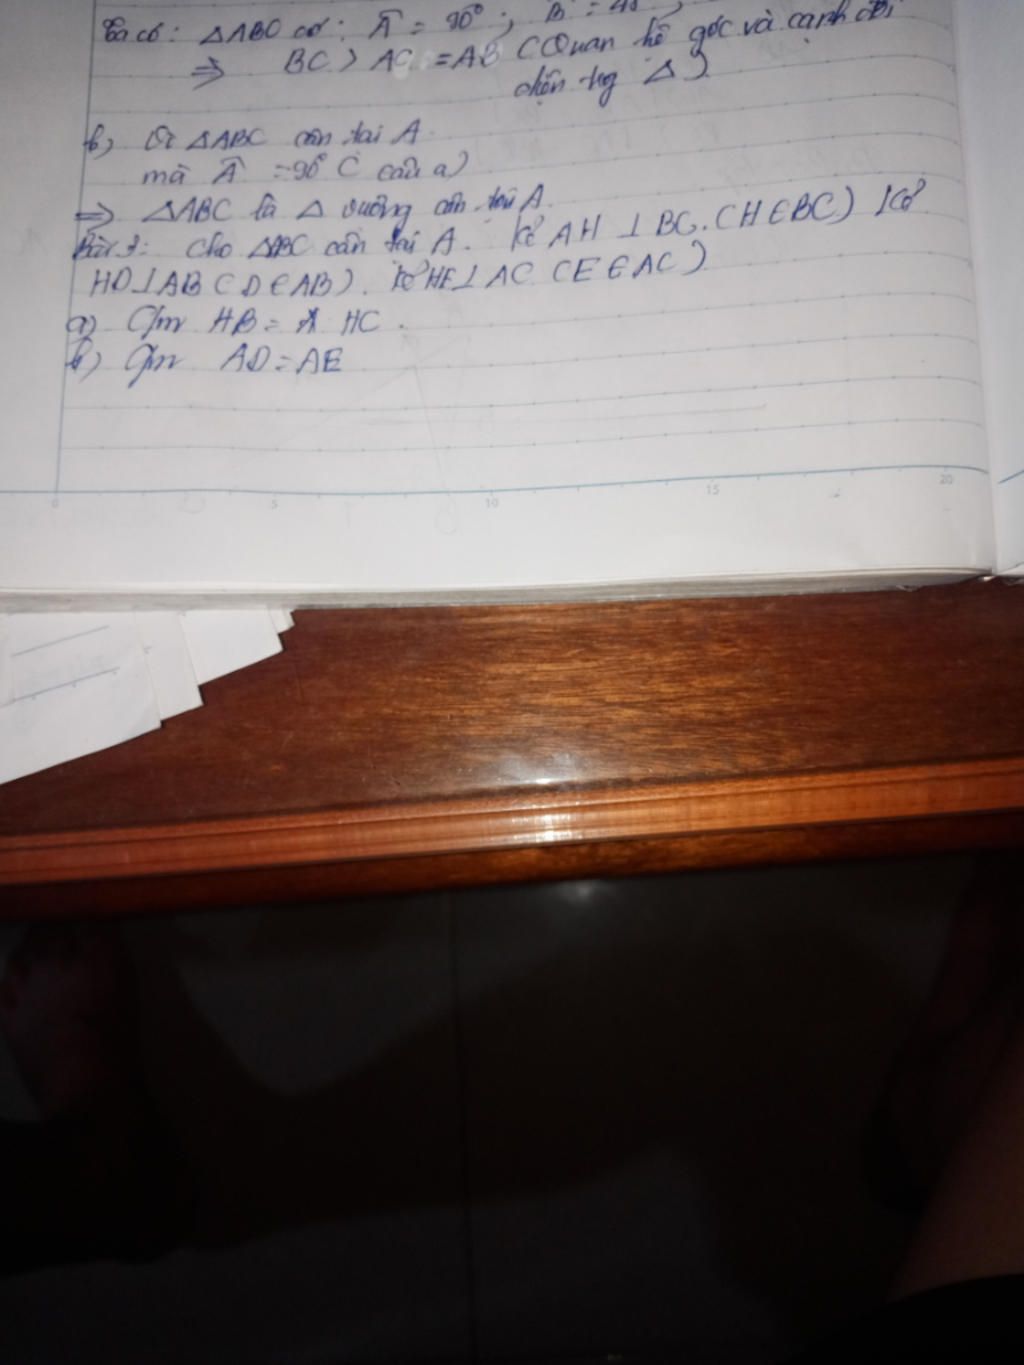 Ta có: △ABC có: Â = 90°; B =
⇒ BC > AC = AB (Quan hệ góc và cạnh đối
diện trg △)
b) Vì △ABC cân tại A.
mà Â = 90° (câu a)
⇒ △ABC là △ vuông cân tại A.
Bài 3: Cho △ABC cân tại A. Kẻ AH ⊥ BC. (H ∈ BC) Kẻ
HD ⊥ AB (D ∈ AB). Kẻ HE ⊥ AC (E ∈ AC)
a) C/m HB = HC.
b) C/m AD = AE
0 5 10 15 20